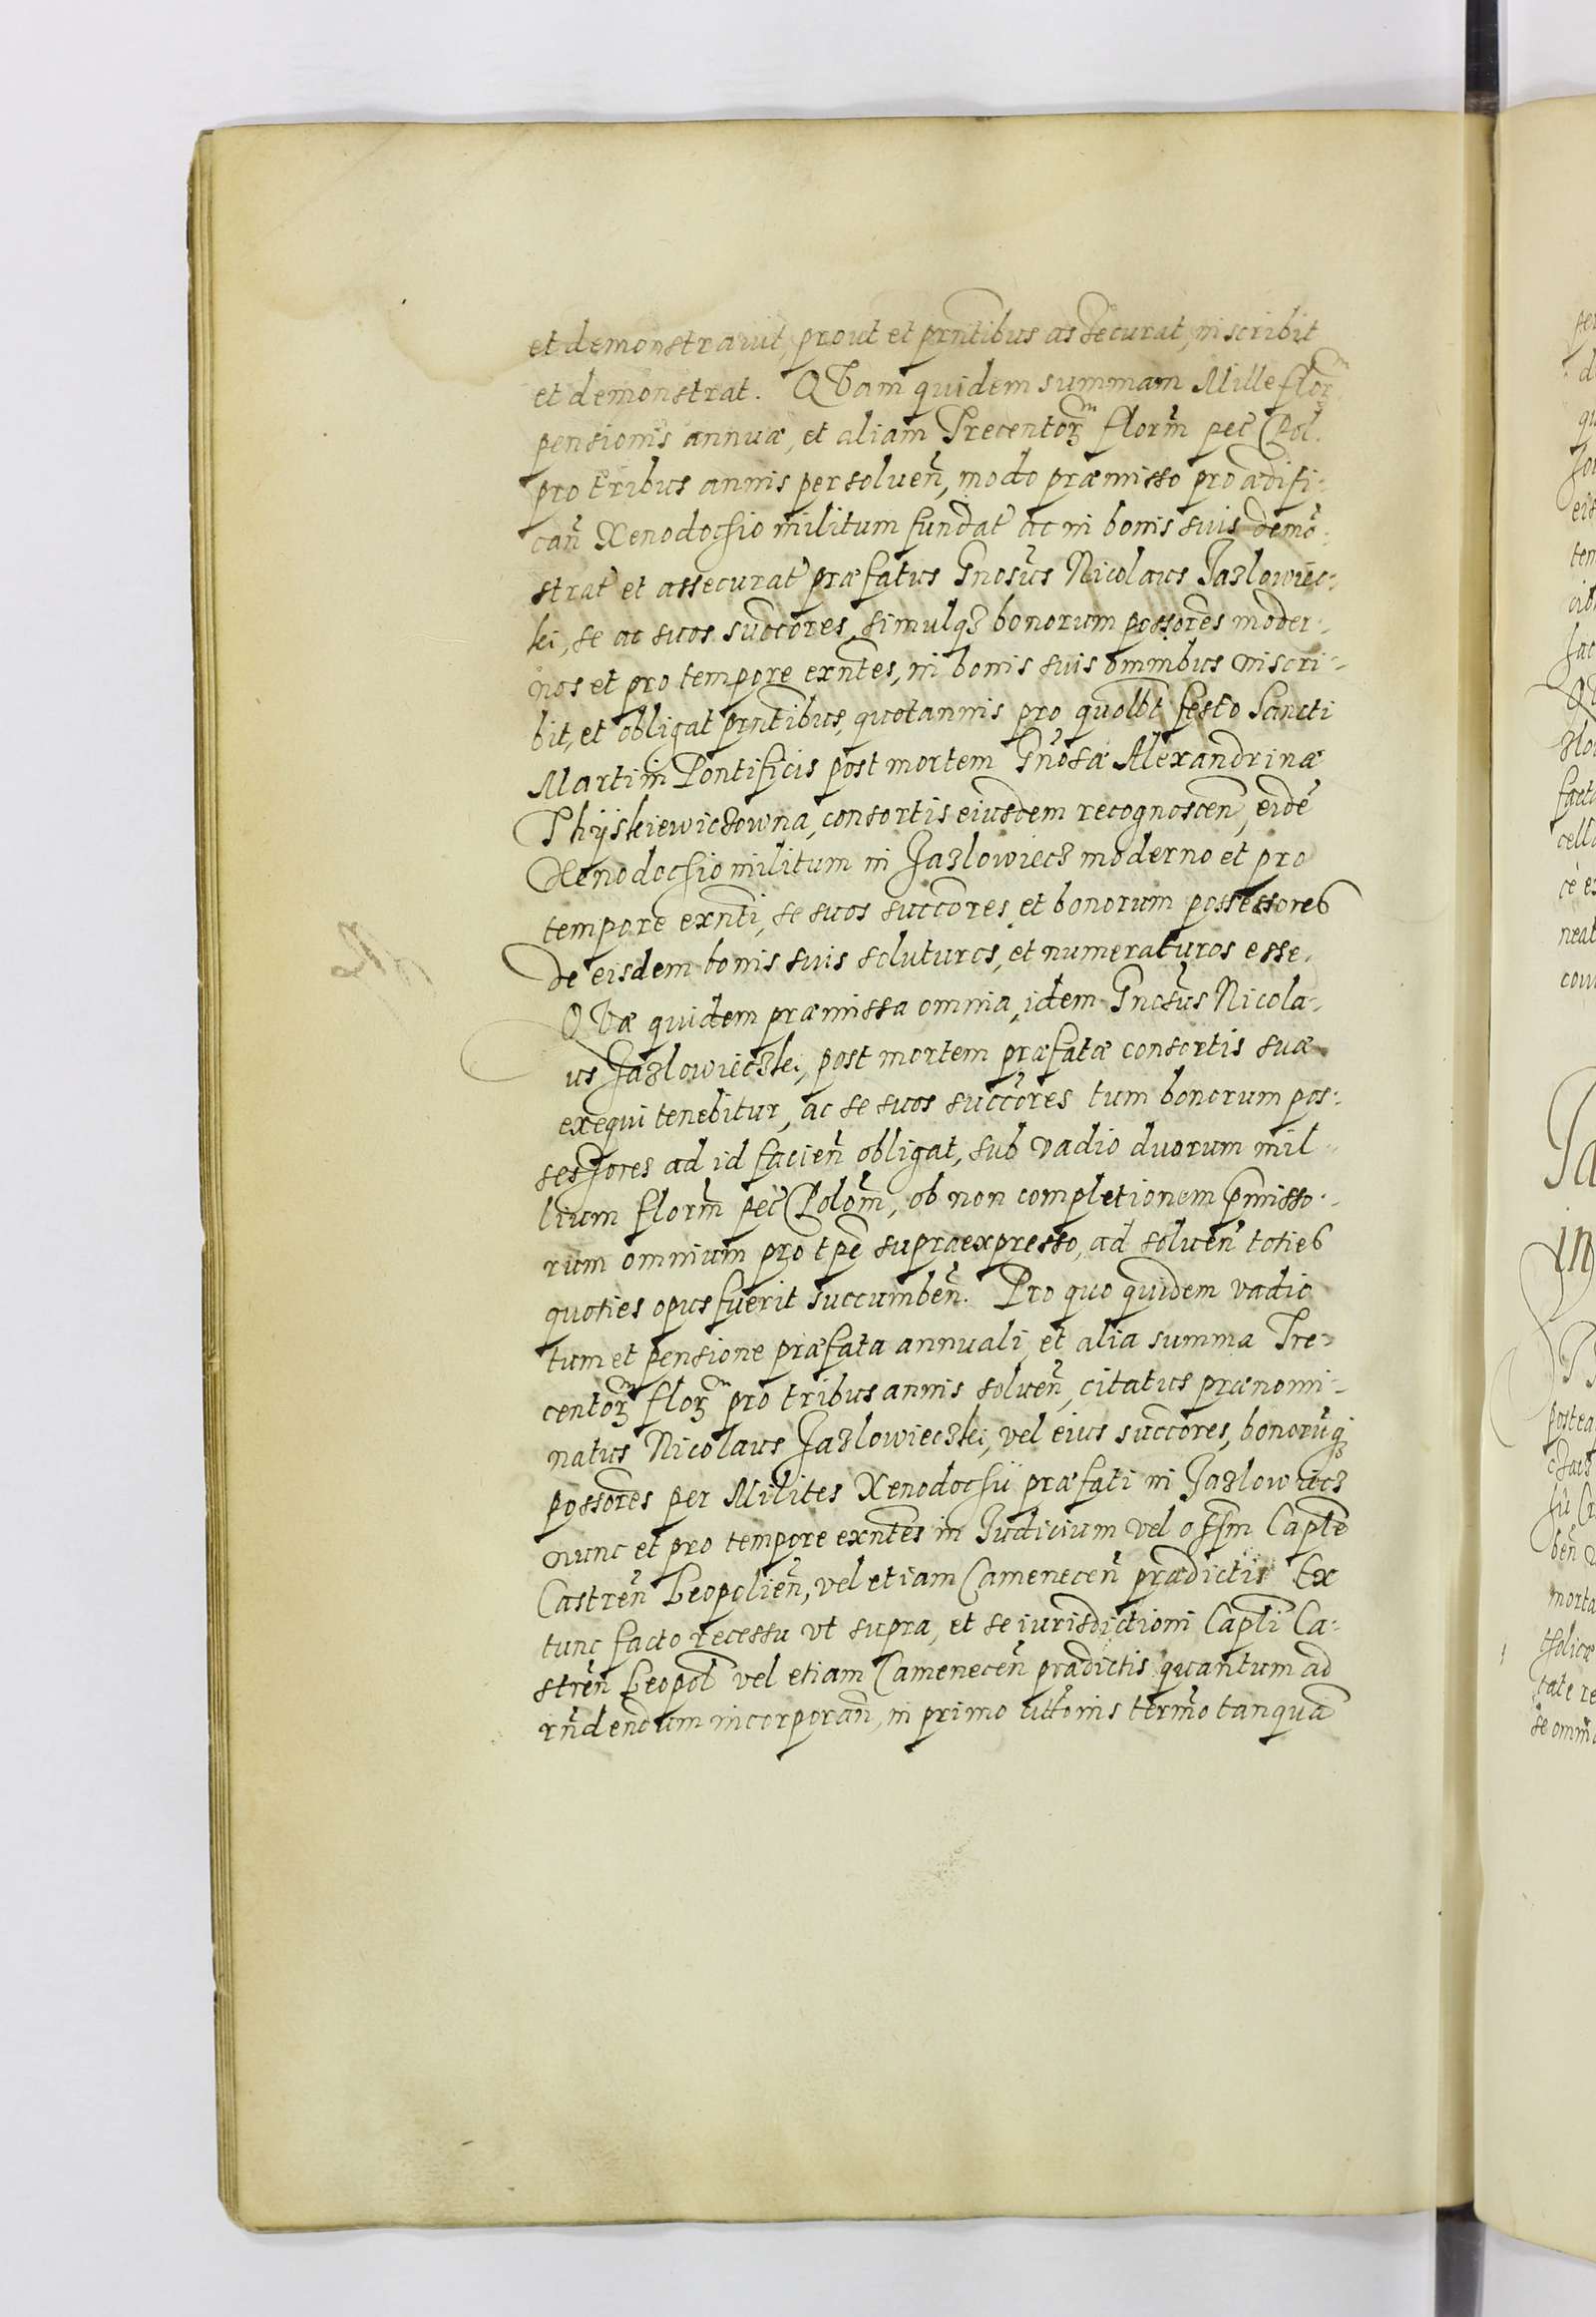 et demonstravit, prout et prñtibus assecurat, inscribit
et demonstrat. QVam quidem summam Mille florꝫ
pensionis annuæ, et aliam Trecentorꝫ florm̃ pec̃ Pol.
pro tribus annis persoluen̄, modo præmisso pro ædifi-
can̄ Xenodochio militum fundat ac in bonis suis demõ-
strat et assecurat præfatus Gnosus Nicolaus Jazlowiec-
ki, se ac suos succores, simulqꝫ bonorum possores moder-
nos et pro tempore exñtes, in bonis suis omnibus inscri-
bit, et obligat prñtibus, quotannis pro quolbt festo Sancti
Martini Pontificis post mortem Gnosæ Alexandrinæ
Thyskiewiczowna, consortis eiusdem recognoscen̄, eidẽ
Xenodochio militum in Jazlowiecz moderno et pro
tempore exñti, se suos succores, et bonorum possessores
de eisdem bonis suis soluturos, et numeraturos esse.
QVæ quidem præmissa omnia, idem Gnosus Nicola-
us Jazlowieczki, post mortem præfatæ consortis suæ
exequi tenebitur, ac se suos succores tum bonorum pos-
sessores ad id facien̄ obligat, sub vadio duorum mil-
lium florm̃ pec̃ Polom̃, ob non completionem p̃misso-
rum omnium pro tp̃e supraexpresso, ad soluen̄ toties
quoties opus fuerit succumben̄. Pro quo quidem vadio
tum et pensione præfata annuali, et alia summa Tre-
centorꝫ florꝫ pro tribus annis soluen̄, citatus prænomi-
natus Nicolaus Jazlowieczki, vel eius succores, bonorũqꝫ
possores per Milites Xenodochii præfati in Jazlowiecz
nunc et pro tempore exñtes in Judicium vel offm Caplẽ
Castren̄ Leopolien̄, vel etiam Camenecen̄ prædictis Ex
tunc facto recessu vt supra, et se iurisdictioni Capli Ca-
stren̄ Leopol vel etiam Camenecen̄ prædictis quantum ad
rñdendum incorporan̄, in primo cittonis termo tanquã